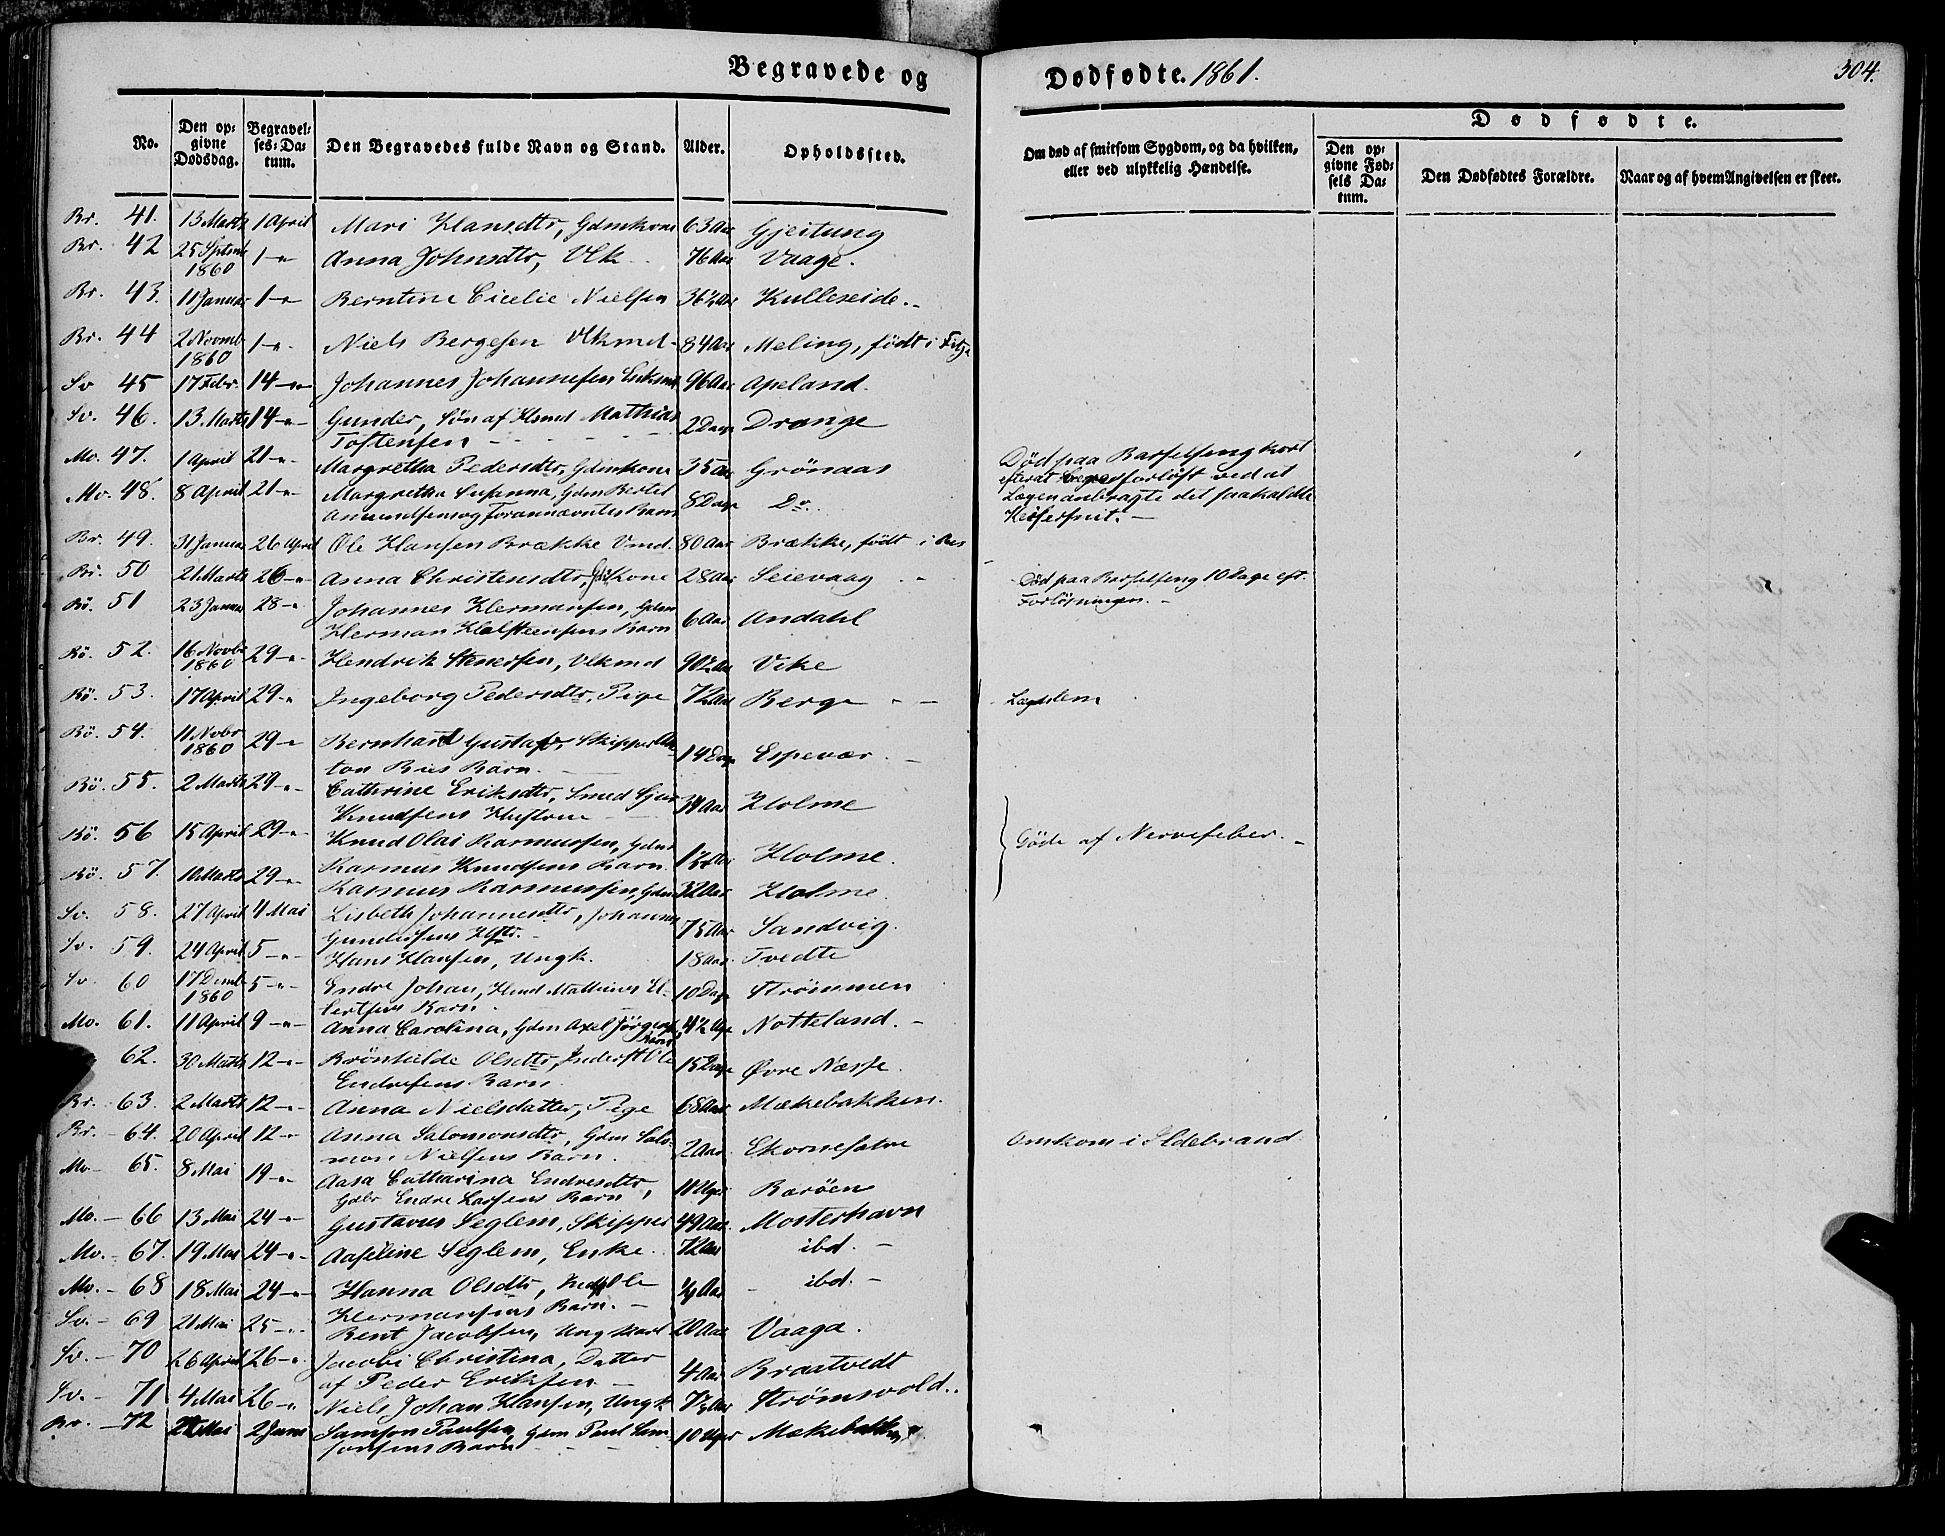 Begravede og Dødfødte. 1861.
304.
No.
Den op-
givne
Dødsdag.
Begravel-
ses-Da-
tum.
Den Begravedes fulde Navn og Stand.
Alder.
Opholdssted.
Om død af smitsom Sygdom, og da hvilken,
eller ved ulykkelig Hændelse.
Dødfødte.
Den op-
givne Fød-
sels Da-
tum.
Den Dødfødtes Forældre.
Naar og af hvem Angivelsen er skeet.
Br. 41. 13 Marts 1 April Mari Hansdtr, Gdmkone 63 Aar Gjeitung
Br. 42 25 Septmb 1860 1-"- Anna Johnsdtr, Vlk. 76 Aar Vaage.
Br. 43. 11 Januar 1-"- Berntine Cicelie Nielsen 36½ Aar Kulleseide.
Br. 44 2 Novmb 1860 1-"- Niels Bergesen Vlkmd 84 Aar Meling, født i Fitje
Sv 45 17 Febr. 14-"- Johannes Johannesen Enkmd 96 Aar Apeland.
Sv. 46. 13 Marts 14-"- Gunder, Søn af Hsmd Mathias
Tostensen 2 Dage Drange
Mo. 47. 1 April 21-"- Margretha Pedersdtr, Gdmkone 35 Aar Grönaas Død paa Barselseng kort
efterat være forløst ved at
Lægen anbragte det saakaldte
Keisersnit.
Mo. 48. 8 April 21-"- Margretha Susanna, Gdm Bertel
Amundsens og forannævntes Barn 8 Dage Do.
Br. 49. 31 Januar 26 April Ole Hansen Brække Vmd. 80 Aar Brække, født i
Br. 50 21 Marts 26-"- Anna Christensdtr, Kone 28 Aar Seievaag Død paa Barselseng 10 Dage eft.
Forløsningen.
Bö. 51 23 Januar 28-"- Johannes Hermansen, Gdm
Herman Halsteensens Barn 6 Aar Andahl
Bö. 52. 16 Novbr 1860 29-"- Hendrik Stenersen, Vlkmd 90½ Aar Vike
Bö. 53. 17 April 29-"- Ingeborg Pedersdtr, Pige 72 Aar Berge Lægdslem
Bö. 54. 11 Nobr 1860 29-"- Bernhard Gustaf, Skipper An-
ton Bies Barn. 14 Dage Espevær.
Bö. 55. 2 Marts 29-"- Cathrine Eriksdtr, Smed
Knudsens Hustrue 39 Aar Holme
Bö. 56 15 April 29-"- Knud Olai Rasmussen, Gdm
Rasmus Knudsens Barn. Holme. Døde af Nervefeber.
Bö. 57. 10 Marts 29-"- Rasmus Rasmussen, Gdm 32 Aar Holme.
Sv. 58. 27 April 4 Mai Lisbeth Johannesdtr, Johannes
Gundersens Hstr. 75 Aar Sandvig.
Sv. 59. 24 April 5-"- Hans Hansen, Ungk. 18 Aar Tvedte
Sv. 60 17 Decmb 1860 5-"- Endre Johan, Hsmd Mathias El-
lertsens Barn. 10 Dage Strømmen
Mo. 61. 11 April 9-"- Anna Carolina, Gdm Axel Jörgens
Barn 4½ Notteland.
62. 30 Marts 12-"- Brönhilde Olsdtr, Inderst Ole
Endresens Barn. 15 Dage Øvre Næsse.
Br. - 63. 2 Marts 12-"- Anna Nielsdatter, Pige 68 Aar Mækebakken.
Br. - 64. 20 April 12-"- Anna Salomonsdtr, Gdm Salo-
mon Nielsens Barn. 2 Aar Ekornesætre Omkom i Ildebrand
Mo - 65. 8 Mai 19-"- Aasa Catharina Endresdtr,
Endre Larsens Barn 11 Uger Barøen
Mo. - 66 13 Mai 24-"- Gustavus Seglem, Skipper 49 Aar. Mosterhavn
Mo. - 67. 19 Mai 24-"- Aaseline Seglem, Enke. 72 Aar ibd.
Mo. - 68 18 Mai 24-"- Hanna Olsdtr, Ole
Hermansens Barn. ibd.
Sv. - 69 21 Mai 25-"- Bent Jacobsen, Ungkarl 20 Aar Vaaga.
Sv. - 70 26 April 26-"- Jacobi Christina, Datter
af Peder Eriksen 4 Aar Braatvedt
Sv. - 71 4 Mai 26-"- Niels Johan Hansen, Ungk Strømsvold.
Br. - 72 Mai 2 Juni Samson Paulsen, Gdm Paul Sam-
sonsens Barn 10 Uger Mækebakken